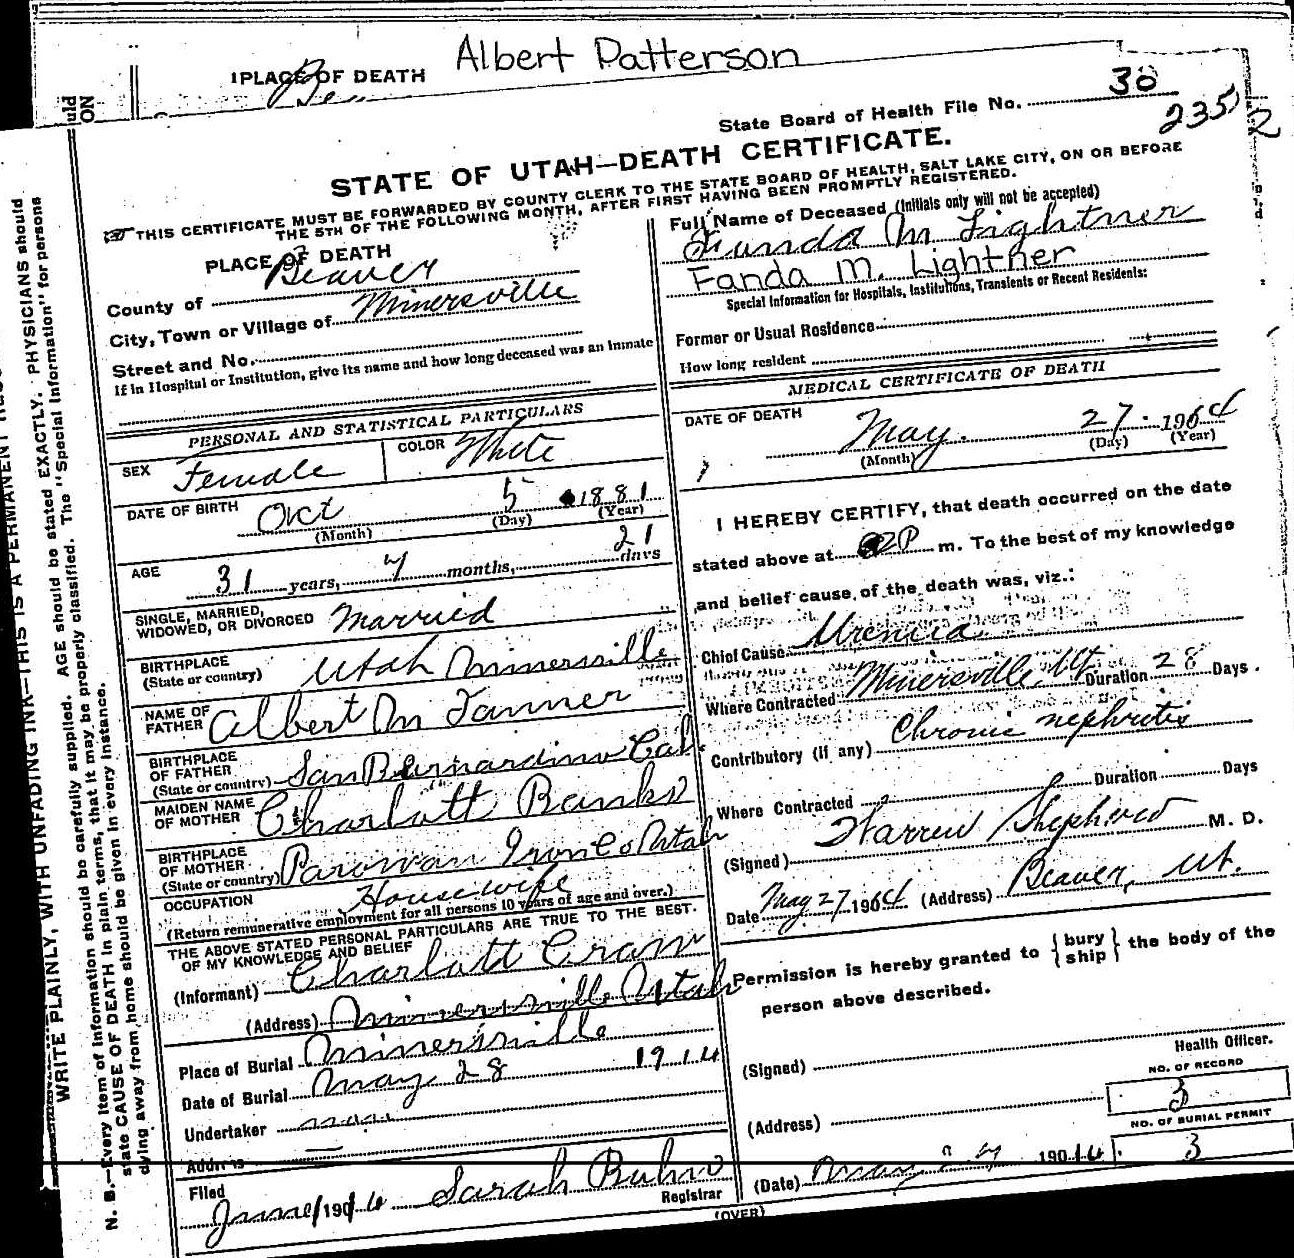 Albert Patterson
1 PLACE OF DEATH
Bea
uld
ON
State Board of Health File No. 30
235 2
STATE OF UTAH—DEATH CERTIFICATE.
THIS CERTIFICATE MUST BE FORWARDED BY COUNTY CLERK TO THE STATE BOARD OF HEALTH, SALT LAKE CITY, ON OR BEFORE
THE 5TH OF THE FOLLOWING MONTH, AFTER FIRST HAVING BEEN PROMPTLY REGISTERED.
PLACE OF DEATH
County of Beaver
City, Town or Village of Minersville
Street and No.
If in Hospital or Institution, give its name and how long deceased was an inmate
PERSONAL AND STATISTICAL PARTICULARS
SEX Female COLOR White
DATE OF BIRTH Oct 5 1881
(Month) (Day) (Year)
AGE 31 years, 7 months, 21 days
SINGLE, MARRIED,
WIDOWED, OR DIVORCED Married
BIRTHPLACE
(State or country) Utah Minersville
NAME OF
FATHER Albert M Tanner
BIRTHPLACE
OF FATHER
(State or country) San Bernardino Cal.
MAIDEN NAME
OF MOTHER Charlott Banks
BIRTHPLACE
OF MOTHER
(State or country) Parowan Iron Co Utah
OCCUPATION Housewife
(Return remunerative employment for all persons 10 years of age and over.)
THE ABOVE STATED PERSONAL PARTICULARS ARE TRUE TO THE BEST.
OF MY KNOWLEDGE AND BELIEF
(Informant) Charlott Craw
(Address) Minersville Utah
Place of Burial Minersville
Date of Burial May 28 1914
Undertaker
Address
Filed
June 1 1914 Sarah
Registrar
Full Name of Deceased (Initials only will not be accepted)
M Lightner
Fanda M. Lightner
Special Information for Hospitals, Institutions, Transients or Recent Residents:
Former or Usual Residence
How long resident
MEDICAL CERTIFICATE OF DEATH
DATE OF DEATH
May. 27 1904
(Month) (Day) (Year)
I HEREBY CERTIFY, that death occurred on the date
stated above at 2 P m. To the best of my knowledge
and belief cause of the death was, viz.:
Chief Cause Uremia
Where Contracted Minersville, Ut Duration 28 Days.
Contributory (if any) Chronic nephritis
Where Contracted Duration Days
(Signed) Warren Shepherd M. D.
Date May 27 1904 (Address) Beaver, Ut.
Permission is hereby granted to {bury ship} the body of the
person above described.
(Signed)
Health Officer.
NO. OF RECORD
3
(Address)
NO. OF BURIAL PERMIT
3
(Date) May 27 1914
(OVER)
WRITE PLAINLY, WITH UNFADING INK—THIS IS A PERMANENT
N. B.—Every item of information should be carefully supplied. AGE should be stated EXACTLY. PHYSICIANS should
state CAUSE OF DEATH in plain terms, that it may be properly classified. The "Special Information" for persons
dying away from home should be given in every instance.